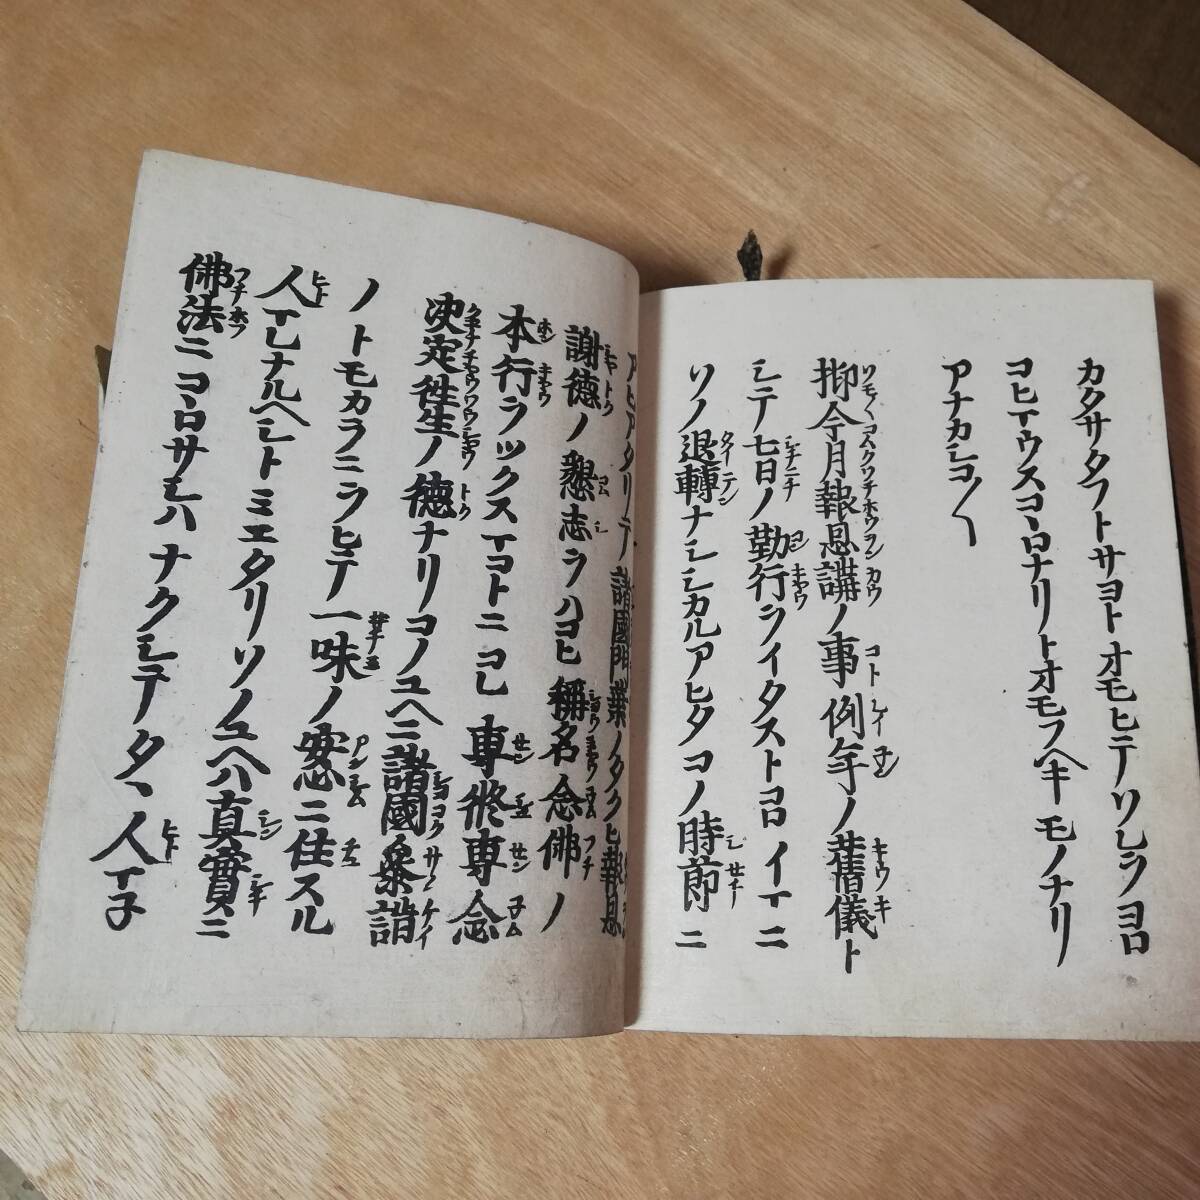 カクサタフトサヨトオモヒテソレヲヨロ
コヒマウスコヽロナリトオモフヘキモノナリ
アナカシコ〳〵
抑今月報恩講ノ事例年ノ舊儀ト
シテ七日ノ勤行ヲイタストコロイマニ
ソノ退轉ナシシカルアヒタコノ時節ニ
アヒアタリテ諸國門葉ノタクヒ報恩
謝德ノ懇志ヲハコヒ稱名念佛ノ
本行ヲツクスマコトニコレ專修專念
決定徃生ノ德ナリコノユヘニ諸國參詣
ノトモカラニヲヒテ一味ノ安心ニ住スル
人マレナルヘシトミエタリソノユヘハ真實ニ
佛法ニコヽロサシハナクシテタヽ人マ子